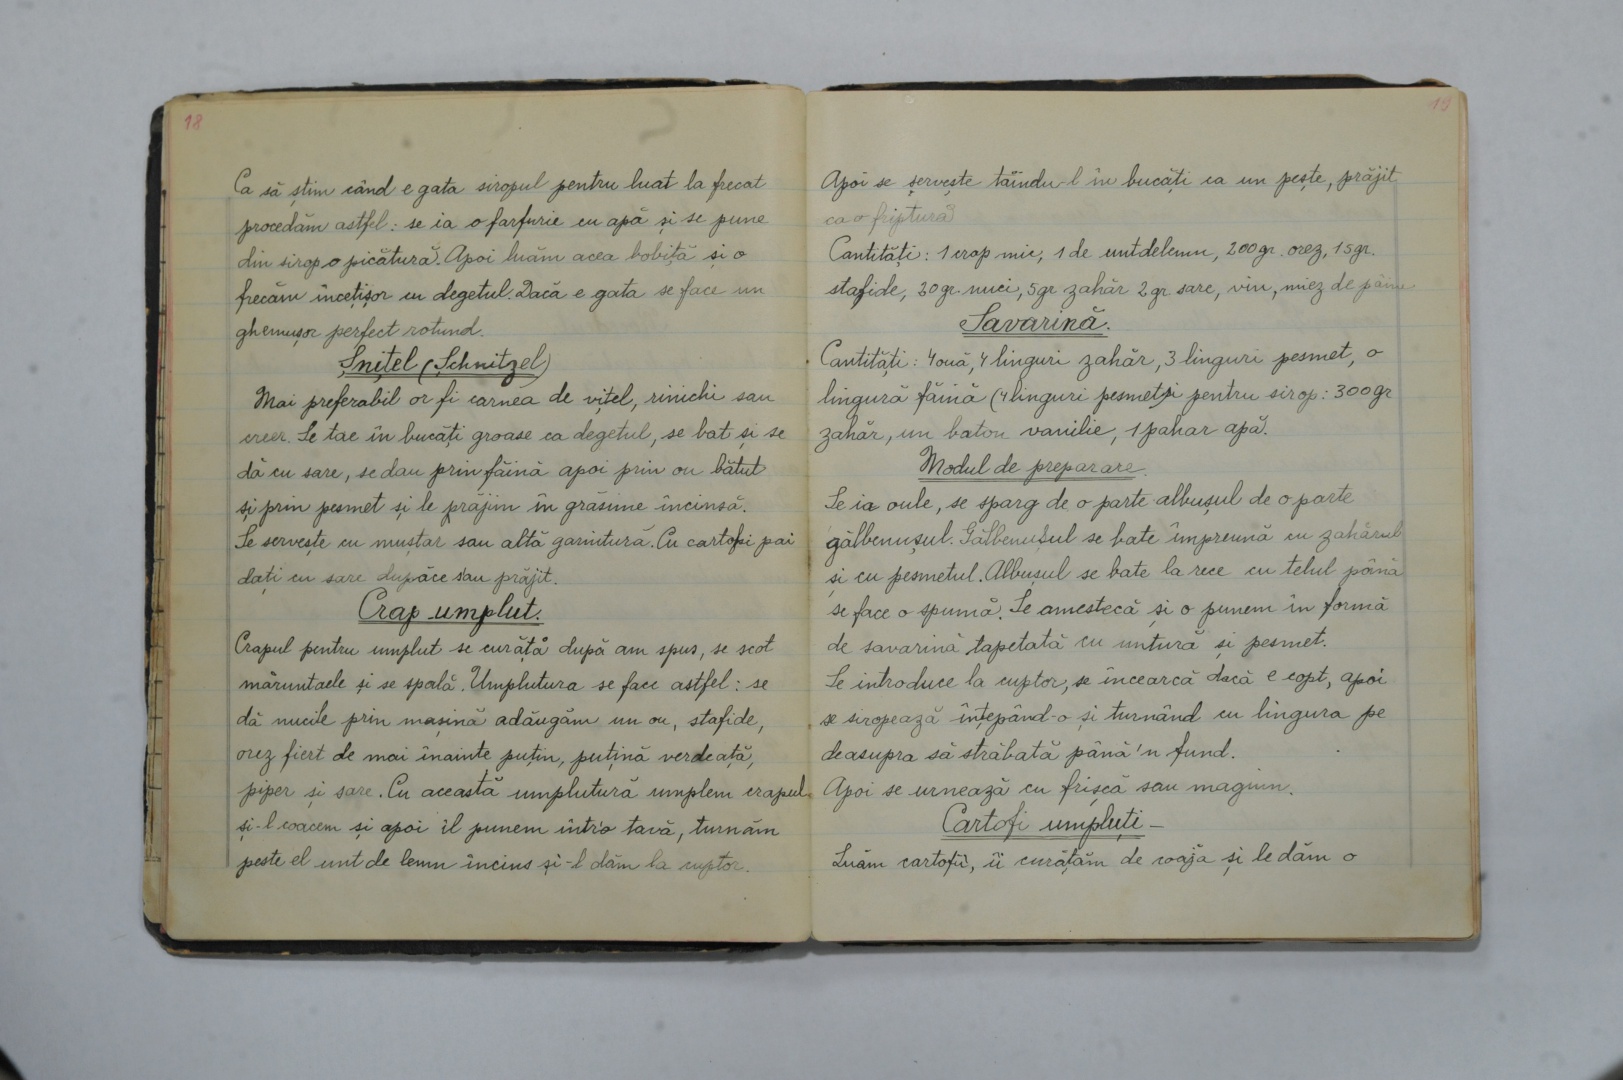 18
Ca să știm când e gata siropul pentru luat la frecat
procedăm astfel: se ia o farfurie cu apă și se pune
din sirop o picătură. Apoi luăm acea bobiță și o
frecăm încetișor cu degetul. Dacă e gata se face un
ghemușor perfect rotund.
Șnițel (Schnitzel)
Mai preferabil or fi carnea de vițel, rinichi sau
creer. Se tae în bucăți groase ca degetul, se bat și se
dă cu sare, se dau prin făină apoi prin ou bătut
și prin pesmet și le prăjim în grăsime încinsă.
Se servește cu muștar sau altă garnitură. Cu cartofi pai
dați cu sare dupăce s'au prăjit.
Crap umplut.
Crapul pentru umplut se curăță după am spus, se scot
măruntaele și se spală. Umplutura se face astfel: se
dă nucile prin mașină adăugăm un ou, stafide,
orez fiert de mai înainte puțin, puțină verdeață,
piper și sare. Cu această umplutură umplem crapul
și-l coacem și apoi îl punem într'o tavă, turnăm
peste el unt de lemn încins și-l dăm la cuptor.
19
Apoi se servește tăindu-l în bucăți ca un pește, prăjit
ca o friptură
Cantități: 1 crap mic, 1 de untdelemn, 200gr. orez, 15gr.
stafide, 30gr. nuci, 5gr zahăr 2gr sare, vin, miez de pâine
Savarină.
Cantități: 4 ouă, 4 linguri zahăr, 3 linguri pesmet, o
lingură făină (4 linguri pesmet) și pentru sirop: 300gr
zahăr, un baton vanilie, 1 pahar apă.
Modul de preparare.
Se ia oule, se sparg de o parte albușul de o parte
gălbenușul. Gălbenușul se bate împreună cu zahărul
și cu pesmetul. Albușul se bate la rece cu telul până
se face o spumă. Se amestecă și o punem în formă
de savarină tapetată cu untură și pesmet.
Se introduce la cuptor, se încearcă dacă e copt, apoi
se siropează înțepând-o și turnând cu lingura pe
deasupra să străbată până'n fund.
Apoi se urnează cu frișcă sau magiun.
Cartofi umpluți -
Luăm cartofii, îi curățăm de coaja și le dăm o